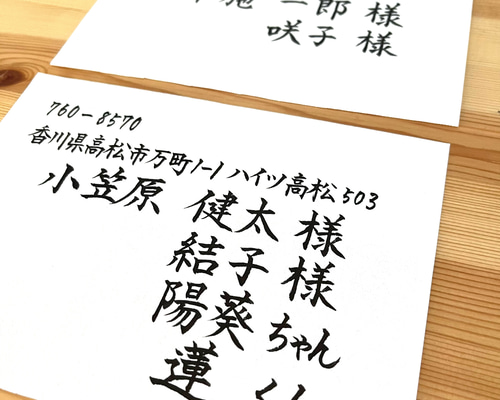 一郎 様
咲子 様
760-8570
香川県高松市万町1-1 ハイツ高松503
小笠原 健太 様
結子 様
陽葵 ちゃん
蓮 くん